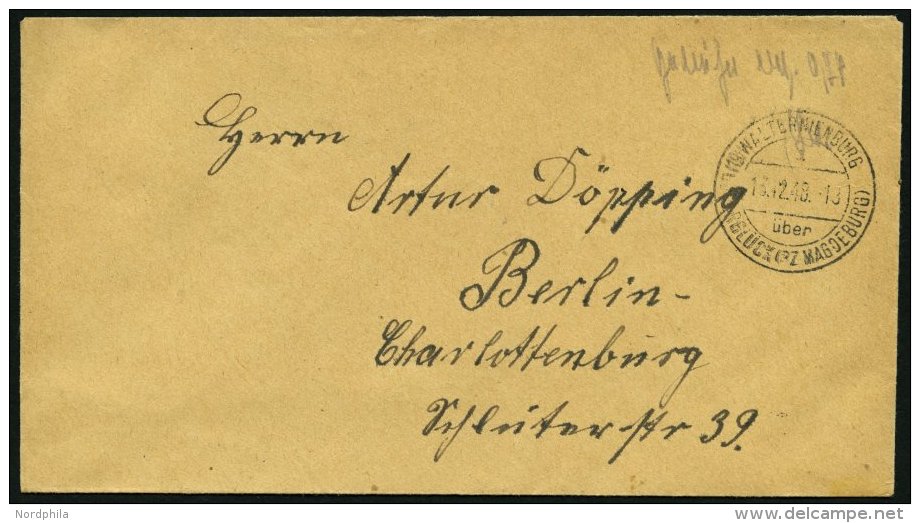 Herrn
Artur Döpping
Berlin-
Charlottenburg
Schlüterstr 39.
WALTERNIENBURG
13.12.48.-18
über
GLÜCK (BZ MAGDEBURG)
Nordphila
delcampe.net